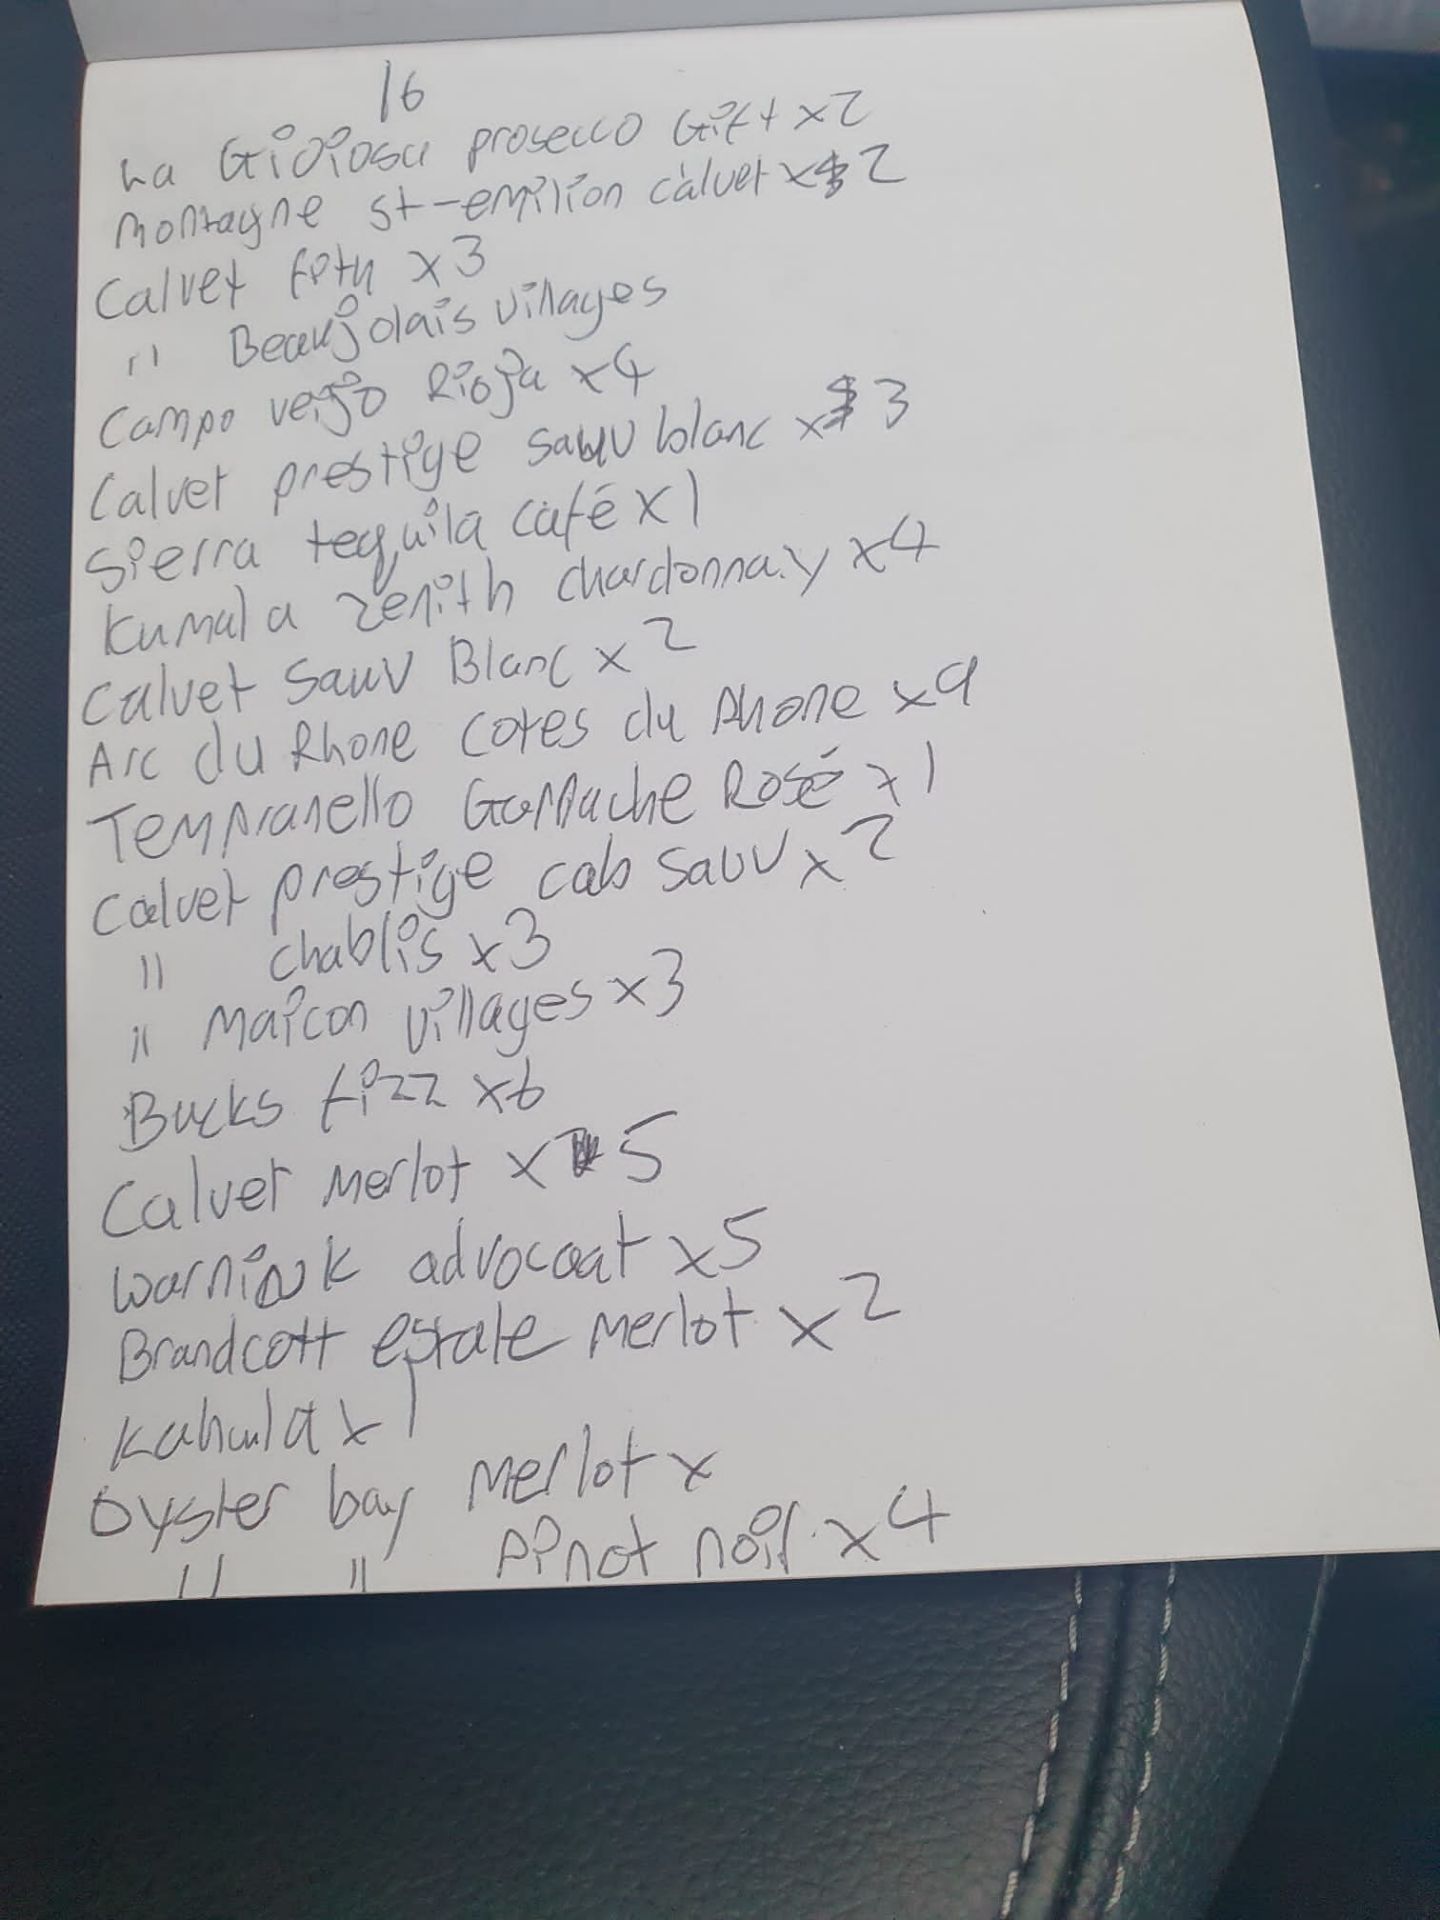 16
La Gioiosa prosecco Gift x2
Montagne st-emilion calvet x 2
Calvet x3
" Beaujolais villages
Campo veijo Rioja x4
Calvet prestige Sauv blanc x 3
Sierra tequila café x1
Kumala zenith chardonnay x4
Calvet Sauv Blanc x2
Arc du Rhone cotes du Rhone x9
Tempranello Garnache Rosé x1
Calvet prestige cab Sauv x2
" chablis x3
" Maicon villages x3
Bucks fizz x6
Calvet Merlot x 5
Warnink advocaat x5
Brandcott estate merlot x2
Kahula x1
Oyster bay Merlot x
" " Pinot noir x4